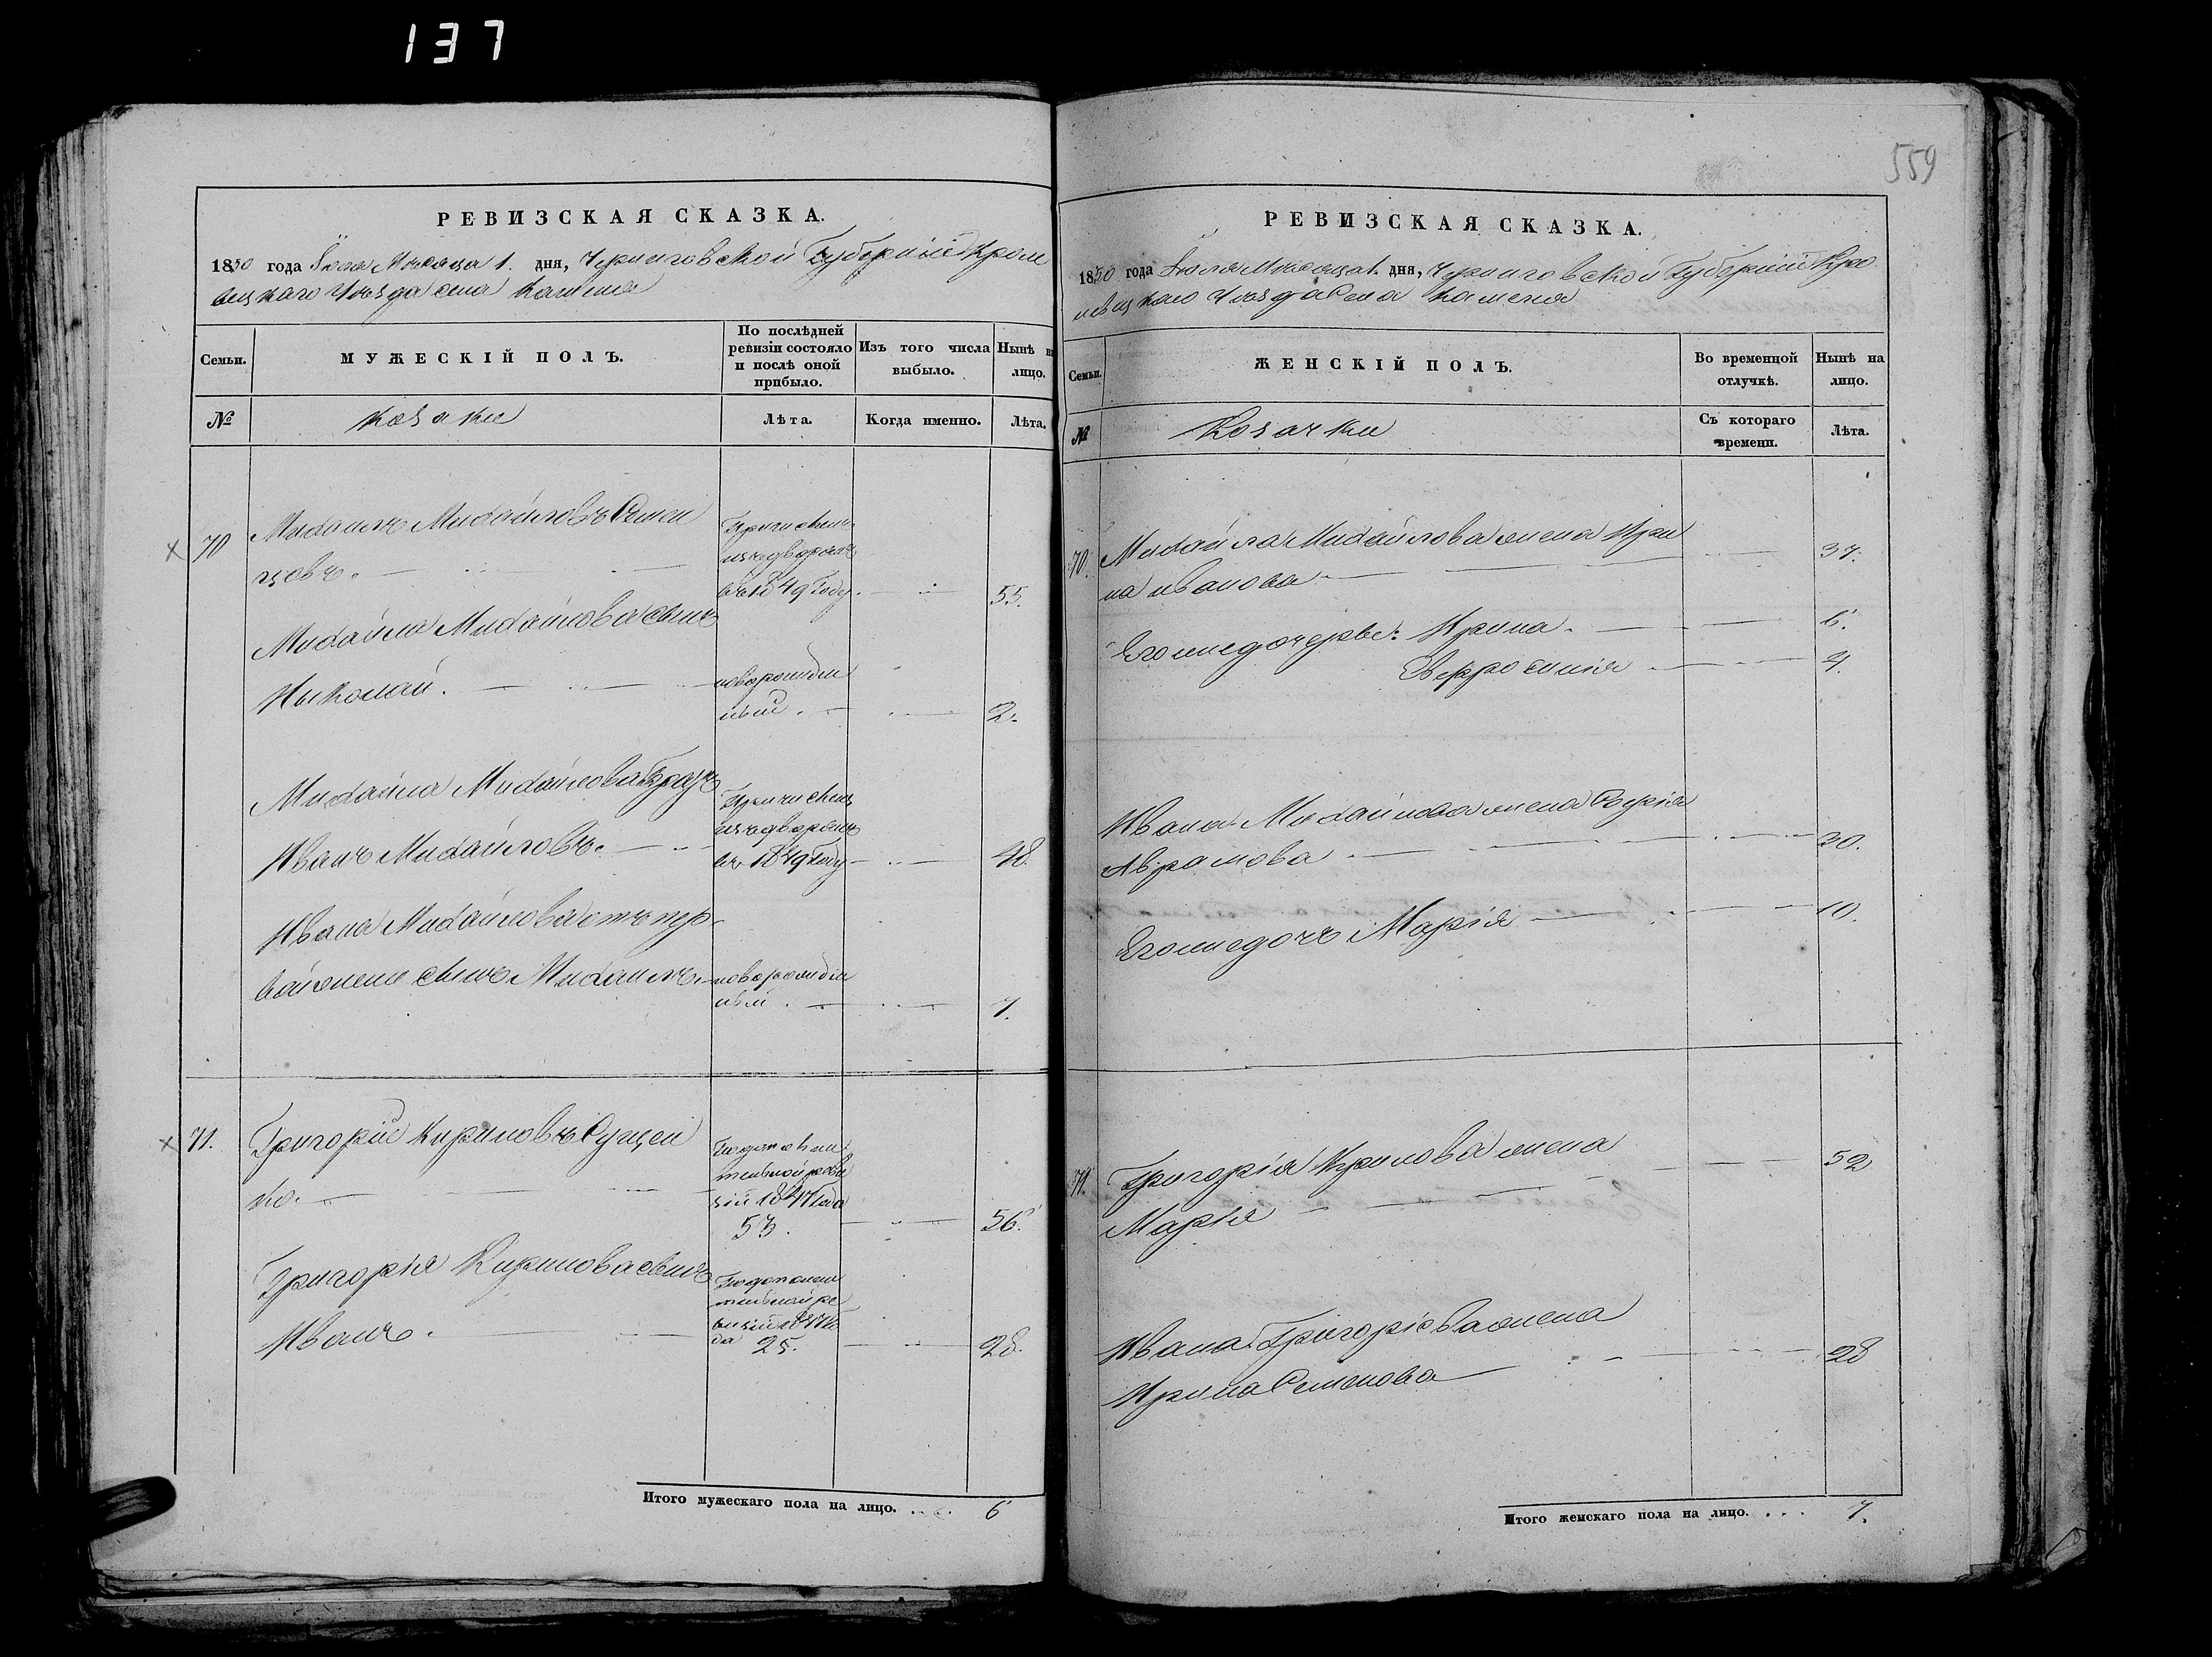 137
РЕВИЗСКАЯ СКАЗКА.
1850 года Іюля Мѣсяца 1. дня, Черниговской Губерніи Кроле
вецкаго Уѣзда села Каменя
Семьи.
МУЖЕСКІЙ ПОЛЪ.
По послѣдней
ревизіи состояло
и послѣ оной
прибыло.
Изъ того числа
выбыло.
Нынѣ на
лицо.
№
Козаки
Лѣта.
Когда именно.
Лѣта.
70
Михаилъ Михайловъ Семен
цовъ.
Причислен
изъ дворянъ
въ 1849 Году.
55.
Михайла Михайлова сынъ
Николай.
новорожден
ный.
2.
Михайла Михайлова братъ
Иванъ Михайловъ.
Причислен
изъ дворянъ
въ 1849 Году
48.
Ивана Михайлова отъ пер
вой жены сынъ Михаилъ.
новорожден
ный.
7.
71.
Григорій Кириловъ Сущен
ко.
По дополни
тельной реви
зіи 1847 Года
53.
56.
Григорія Кирилова сынъ
Иванъ.
По дополни
тельной ре
визіи 1847 Го
да 25.
28.
Итого мужескаго пола на лицо. . . . 6
559
РЕВИЗСКАЯ СКАЗКА.
1850 года Іюля Мѣсяца 1. дня, Черниговской Губерніи Кро
левецкаго Уѣзда Села Каменя
Семьи.
ЖЕНСКІЙ ПОЛЪ.
Во временной
отлучкѣ.
Нынѣ на
лицо.
№
Козачки
Съ котораго
времени.
Лѣта.
70.
Михайла Михайлова жена Ири
на Иванова
37.
Его же дочери: Ирина.
6.
Евфросинія
4.
Ивана Михайлова жена Софія
Аврамова
30.
Его же дочь Марія
10.
71.
Григорія Кирилова жена
Марія
52
Ивана Григоріева жена
Ирина Семенова
28
Итого женскаго пола на лицо. . . . 7.